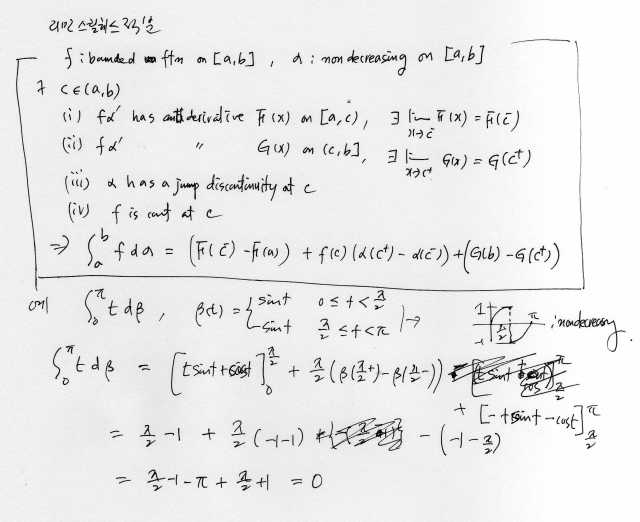 리만 스틸체스 적분
f : bounded ftn on [a,b] , α : nondecreasing on [a,b]
∃ c∈(a,b)
(i) fα' has antiderivative F(x) on [a,c), ∃ lim_{x→c⁻} F(x) = F(c⁻)
(ii) fα' 〃 G(x) on (c,b], ∃ lim_{x→c⁺} G(x) = G(c⁺)
(iii) α has a jump discontinuity at c
(iv) f is cont at c
⇒ ∫_a^b f dα = (F(c⁻) - F(a)) + f(c) (α(c⁺) - α(c⁻)) + (G(b) - G(c⁺))
예) ∫_0^π t dβ , β(t) = { sint 0 ≤ t < π/2
-sint π/2 ≤ t < π
1 -1 π/2 π : nondecreasing.
∫_0^π t dβ = [tsint + cost]_0^{π/2} + π/2 (β(π/2+) - β(π/2-))
+ [-tsint - cost]_{π/2}^π
= π/2 - 1 + π/2 (-1-1) - (-1 - π/2)
= π/2 - 1 - π + π/2 + 1 = 0